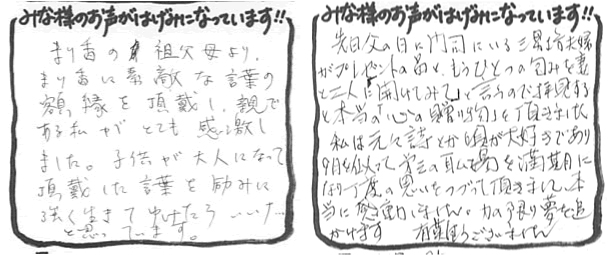 みな様のお声がはげみになっています!!
まり香の 祖父母より、
まり香に素敵な言葉の
額縁を頂戴し、親で
ある私がとても感激し
ました。子供が大人になって
頂戴した言葉を励みに
強く生きて くれたら いいナ…
と思っています。
みな様のお声がはげみになっています!!
先日父の日に門司にいる三男夫婦
がプレゼントの品と、もうひとつの包みを妻
と二人で「開けてみて」と言うので拝見する
と本当の「心の贈り物」を頂きました
私は元々詩とか唄が大好きであり
を 満期に
なり 度の思いをつづって頂きまして、本
当に感動しました。力の限り夢を追
いかけます 有難うございました